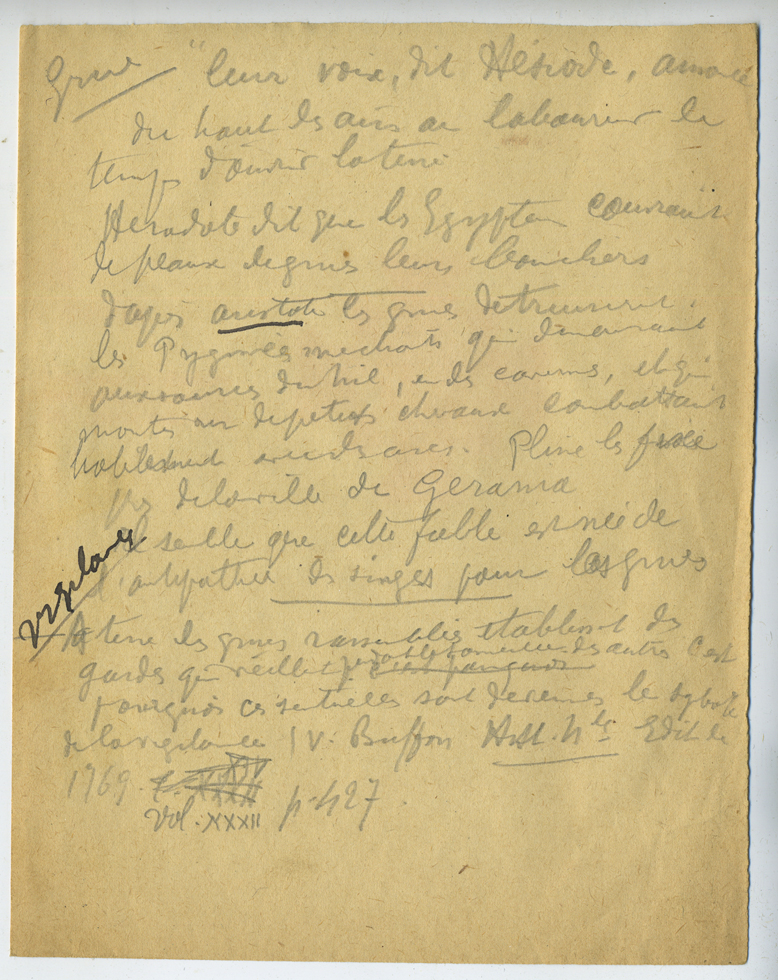 Grue " leur voix, dit Hésiode, annonce
du haut des airs au laboureur le
temps d'ouvrir la terre
Herodote dit que les Egyptiens couvraient
de peaux de grues leurs boucliers
d'après aristote les grues detruisirent
les Pygmées mechants qui demeuraient
aux sources du Nil, en des cavernes, et qui
montés sur de petits chevaux combattaient
Pline les
de la ville de Gerama
Il semble que cette fable est née de
vigilance
l'antipathie des singes pour les grues
A terre les grues rassemblées etablissent des
gardes qui veillent des autres C'est
pourquoi ces sentinelles sont devenues le symbole
de la vigilance | V. Buffon Hist. Nlle Edit de
1769 XXXII
Vol. XXXII p. 427.